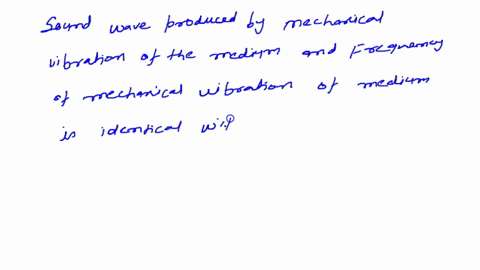 Sound wave produced by mechanical
vibration of the medium and Frequency
of mechanical vibration of medium
is identical with